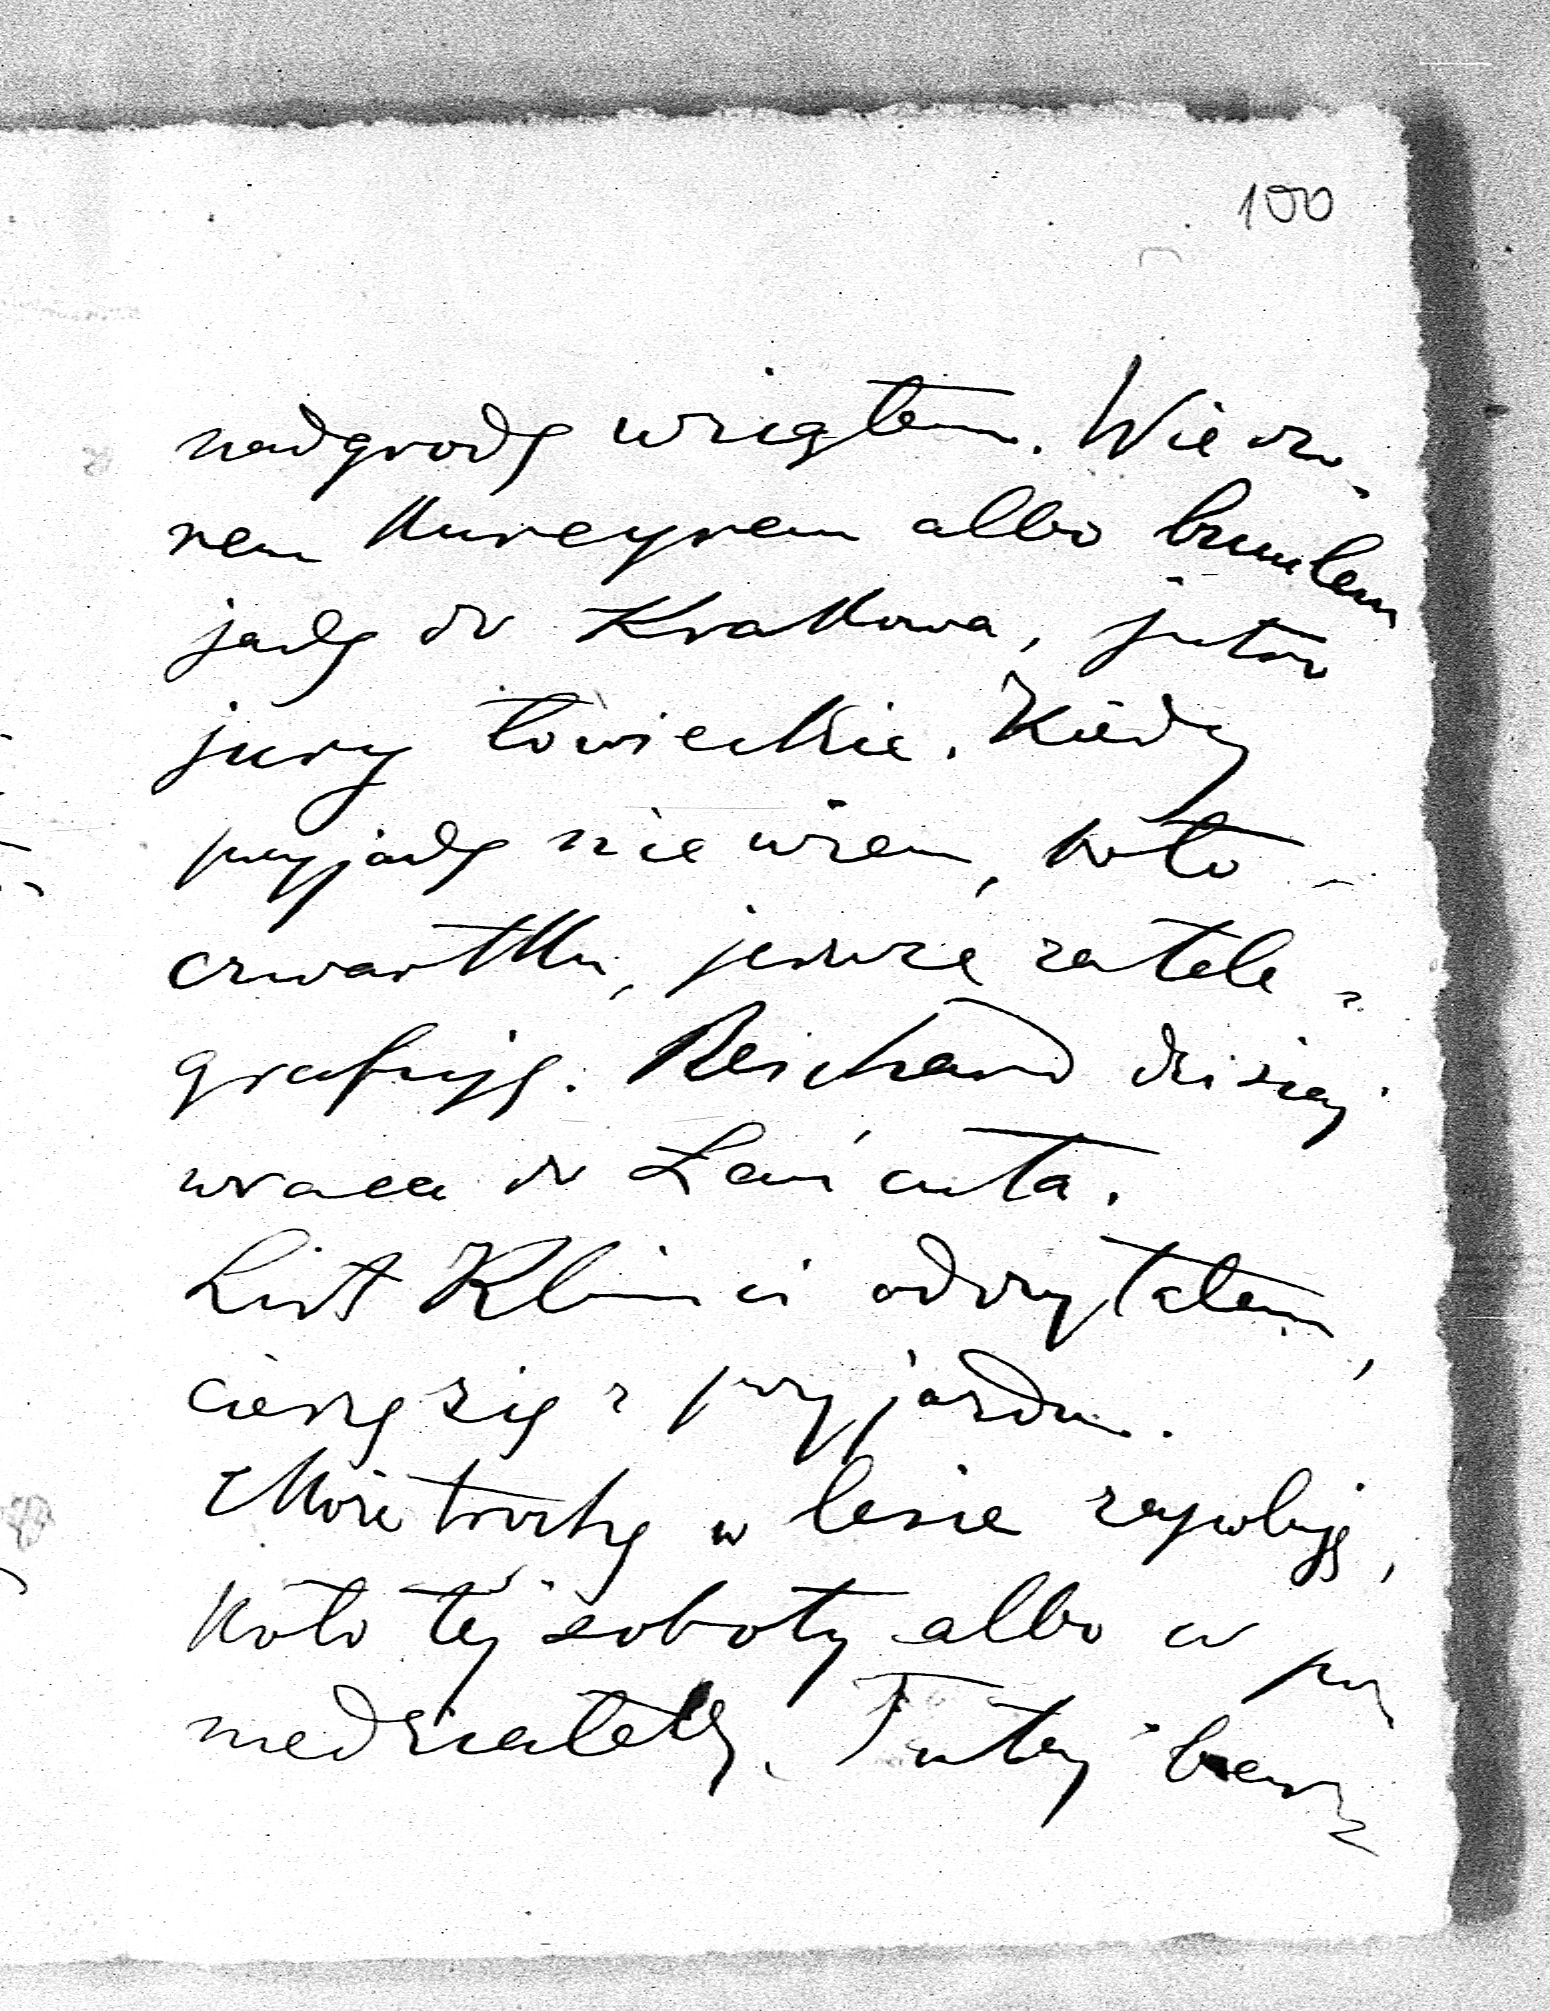 100
nadgrodę wziąłem. Wieczo-
rem kureyrem albo bumlem
jadę do Krakowa, jutro
jury łowieckie. Kiedy
przyjadę nie wiem, koło
czwartku, jeszcze zatele-
grafuję. Reichard dzisiaj
wraca do Łańcuta.
List Klimci odczytałem,
cieszę się z przyjazdu.
Może trochę w lesie zapoluję,
koło tej soboty albo w po
niedziałek. Tutaj bardz